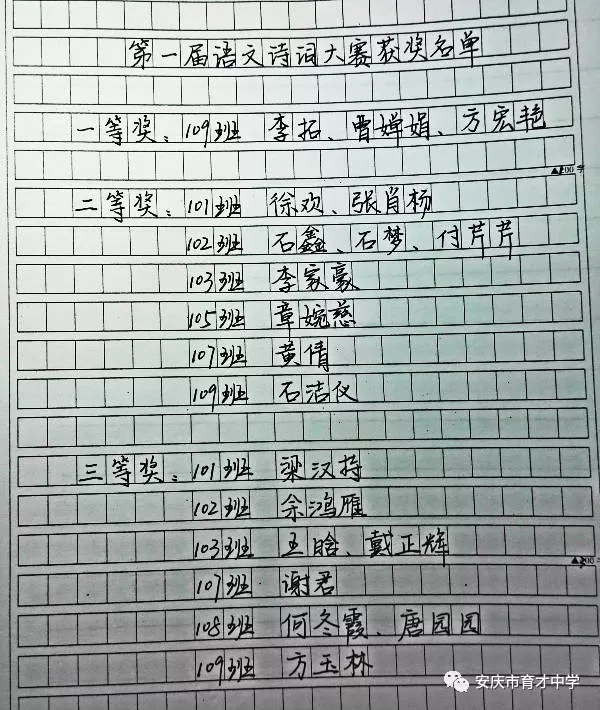 第一届语文诗词大赛获奖名单
一等奖：109班 李拓、曹婵娟、方宏艳
▲200字
二等奖：101班 徐欢、张肖杨
102班 石鑫、石梦、付芹芹
103班 李家豪
105班 章婉慈
107班 黄倩
109班 石洁仪
三等奖：101班 梁汉持
102班 余鸿雁
103班 王晗、戴正辉
107班 谢君
108班 何冬霞、唐园园
109班 方玉林
安庆市育才中学